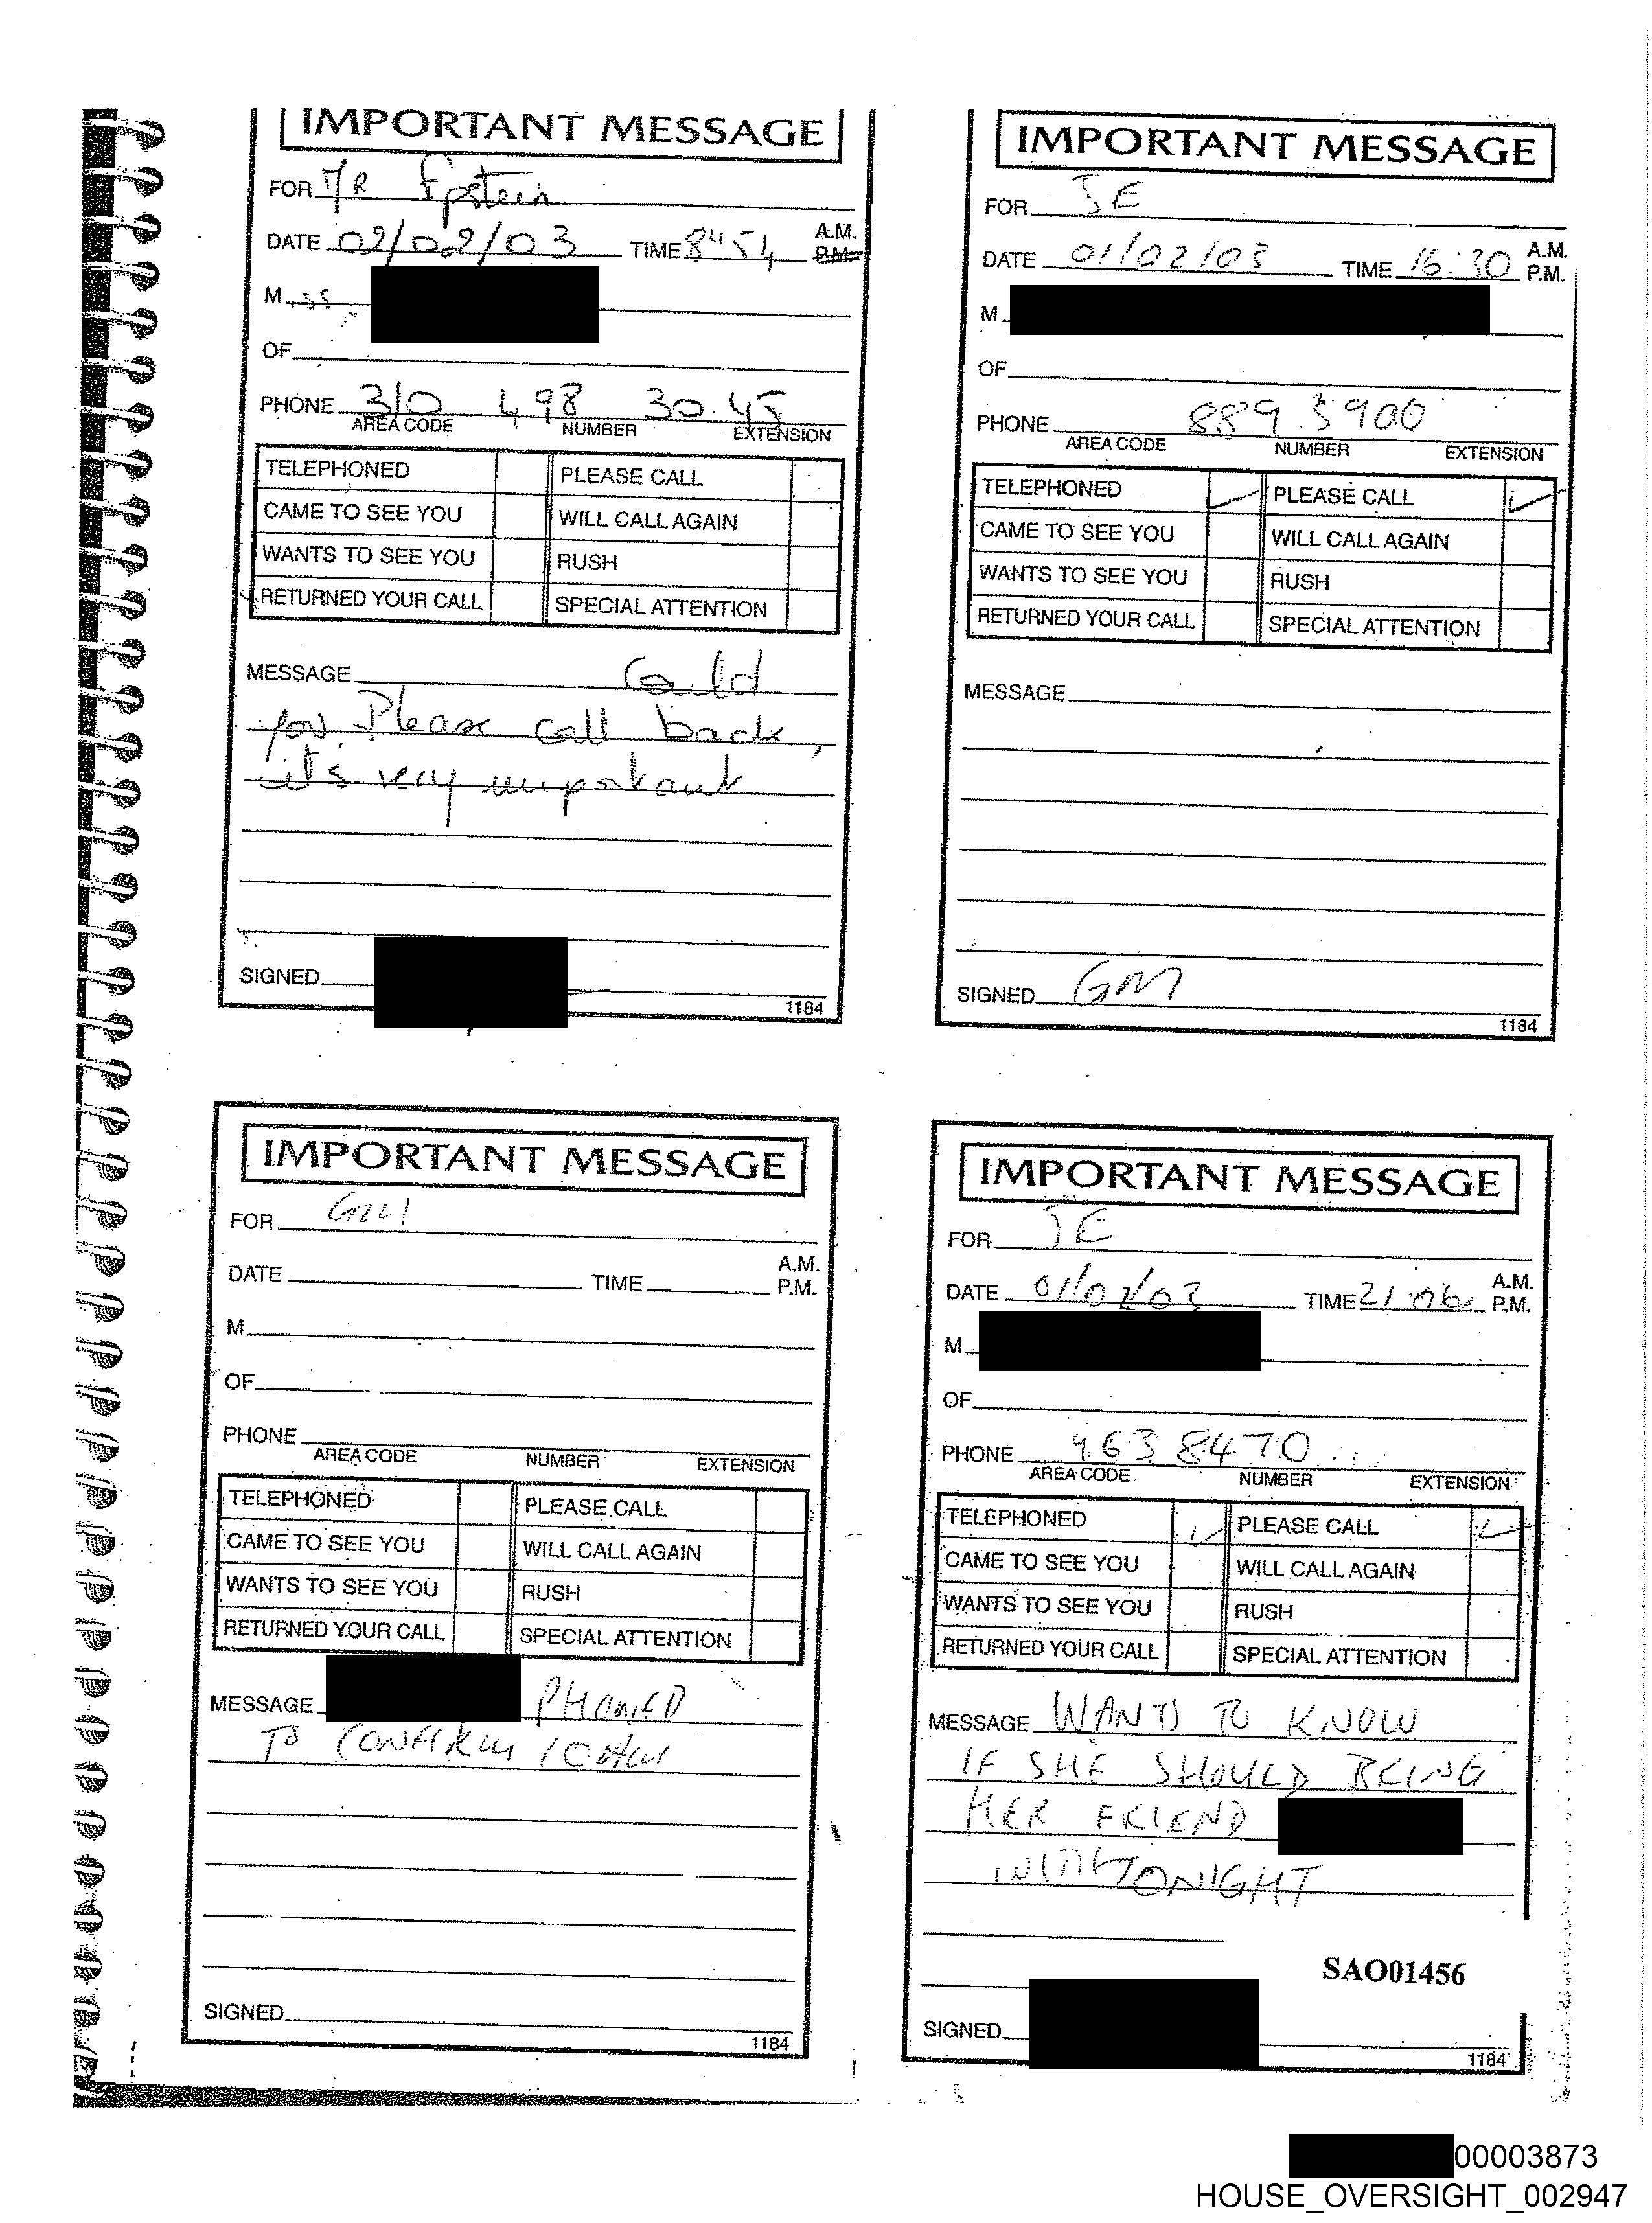 IMPORTANT MESSAGE
FOR MR Epstein
DATE 02/02/03 TIME 8:54 A.M.
P.M.
M iss
OF
PHONE 310 498 30.45
AREA CODE NUMBER EXTENSION
TELEPHONED PLEASE CALL
CAME TO SEE YOU WILL CALL AGAIN
WANTS TO SEE YOU RUSH
RETURNED YOUR CALL SPECIAL ATTENTION
MESSAGE Could
you Please call back,
it's very important
SIGNED
1184
IMPORTANT MESSAGE
FOR JE
DATE 01/02/03 TIME 16:30 A.M.
P.M.
M
OF
PHONE 889.3900
AREA CODE NUMBER EXTENSION
TELEPHONED PLEASE CALL
CAME TO SEE YOU WILL CALL AGAIN
WANTS TO SEE YOU RUSH
RETURNED YOUR CALL SPECIAL ATTENTION
MESSAGE
SIGNED GM
1184
IMPORTANT MESSAGE
FOR GM
DATE TIME A.M.
P.M.
M
OF
PHONE
AREA CODE NUMBER EXTENSION
TELEPHONED PLEASE CALL
CAME TO SEE YOU WILL CALL AGAIN
WANTS TO SEE YOU RUSH
RETURNED YOUR CALL SPECIAL ATTENTION
MESSAGE PHONED
TO CONFIRM 10AM
SIGNED
1184
IMPORTANT MESSAGE
FOR JE
DATE 01/02/03 TIME 21:06 A.M.
P.M.
M
OF
PHONE 463 8470
AREA CODE NUMBER EXTENSION
TELEPHONED PLEASE CALL
CAME TO SEE YOU WILL CALL AGAIN
WANTS TO SEE YOU RUSH
RETURNED YOUR CALL SPECIAL ATTENTION
MESSAGE WANTS TO KNOW
IF SHE SHOULD BRING
HER FRIEND
TONIGHT
SAO01456
SIGNED
1184
00003873
HOUSE_OVERSIGHT_002947